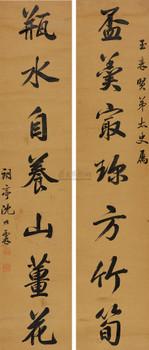 玉森賢弟太史屬
盃羹寂珎方竹筍
瓶水自養山薑花
詞亭沈